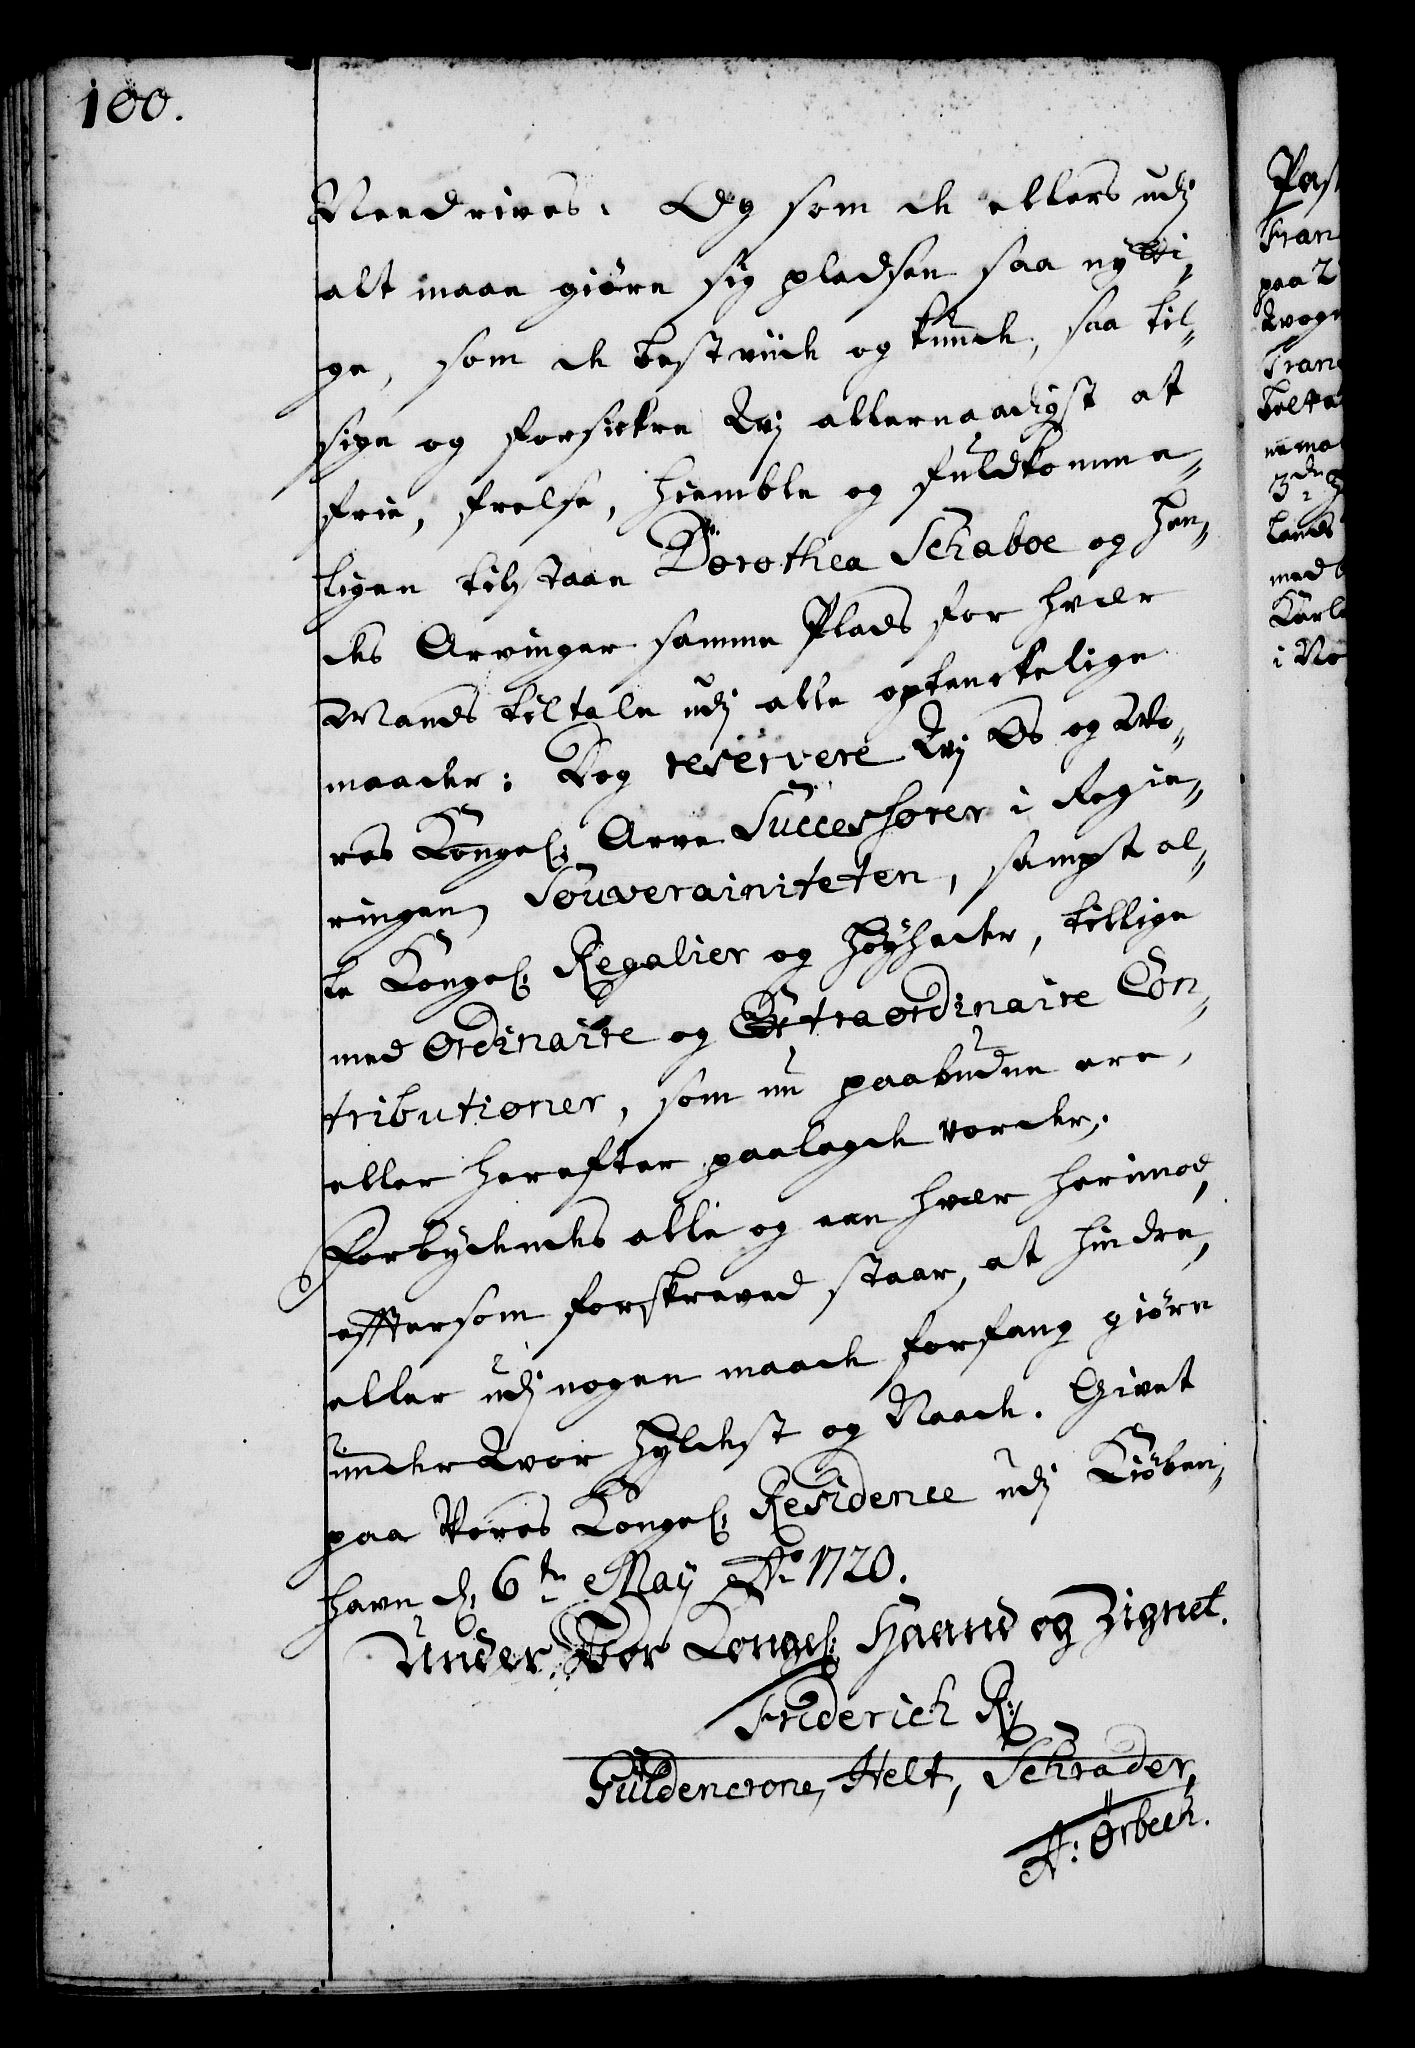 100.
Needrives. Og som de ellers udj
alt maae giøre sig pladsen saa nytti„
ge, som de best vüde og kunde, saa til„
sige og forsickre Wij allernaadigst at
frie, frelse, hiemble og fuldkomme„
ligen tilstaae Dorothea Schaboe og hen„
des Arvinger samme Plads for hver
Mands tiltale udj alle optenckelige
maader; Dog reservere Wij Os og Vo„
res Kongel: Arve Successorer i Regie„
ringen, Souverainiteten, sampt al„
le Kongel: Regalier og høyheder, tillige
med Ordinaire og Extraordinaire Con„
tributioner, som nu paabudne ere,
eller herefter paalagde vorder.
Forbydendes alle og een hver herimod,
eftersom forskreved staar, at hindre,
eller udj nogen maade forfang giøre
under Vor hyldest og Naade. Givet
paa Vores Kongel: Residence udj Kiøben„
havn d. 6te May Ao 1720.
Under Vor Kongel: Haand og Zignet.
Friderich R:
Güldencrone, Helt, Schrader,
A: Ørbech.
Pas
Fran
paa 2
Tran
3de
lands
med
i No